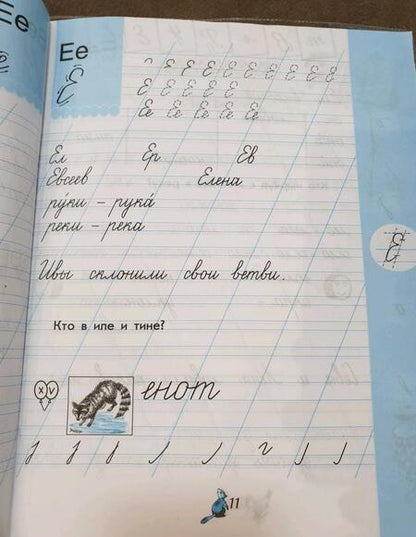 Ее
Ее
Е
Е Е Е Е Е Е Е Е Е
Е Е Е Е Е
Ее Ее Ее Ее Ее
Ел Ер Ев
Евсеев Елена
ру́ки – рука́
реки – река
Ивы склонили свои ветви.
Кто в иле и тине?
Х У
енот
11
Е